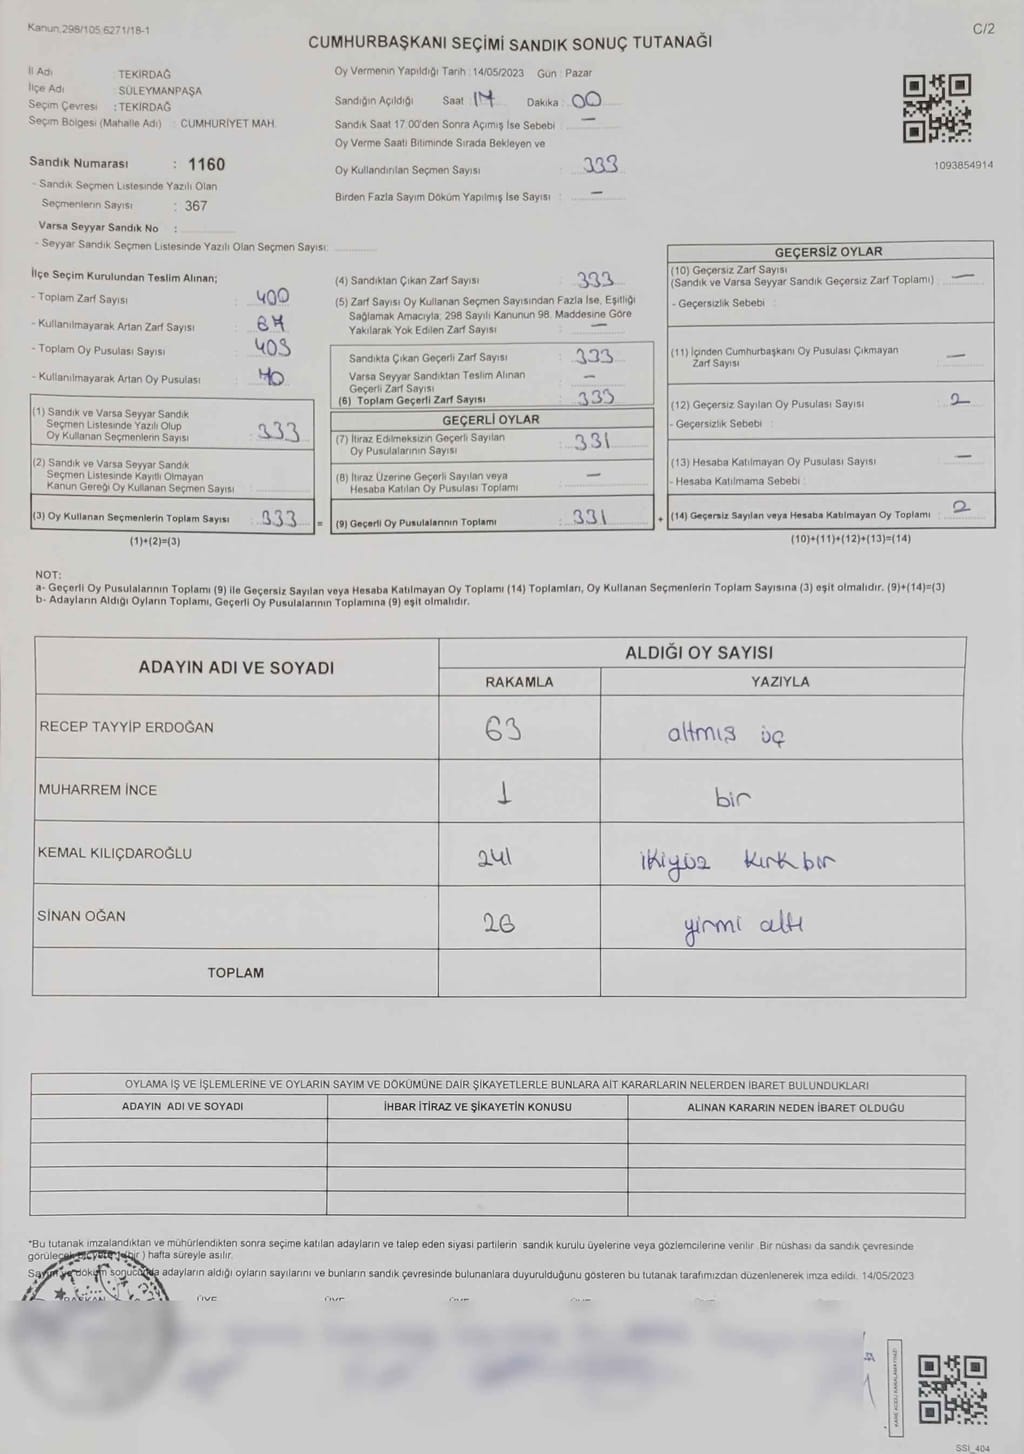 Kanun.298/105.6271/18-1
C/2
CUMHURBAŞKANI SEÇİMİ SANDIK SONUÇ TUTANAĞI
İl Adı : TEKİRDAĞ
İlçe Adı : SÜLEYMANPAŞA
Seçim Çevresi : TEKİRDAĞ
Seçim Bölgesi (Mahalle Adı) : CUMHURİYET MAH.
Sandık Numarası : 1160
- Sandık Seçmen Listesinde Yazılı Olan
Seçmenlerin Sayısı : 367
Varsa Seyyar Sandık No :
- Seyyar Sandık Seçmen Listesinde Yazılı Olan Seçmen Sayısı:
Oy Vermenin Yapıldığı Tarih : 14/05/2023 Gün : Pazar
Sandığın Açıldığı Saat 17 Dakika : 00
Sandık Saat 17.00'den Sonra Açımış İse Sebebi : —
Oy Verme Saati Bitiminde Sırada Bekleyen ve
Oy Kullandırılan Seçmen Sayısı : 333
Birden Fazla Sayım Döküm Yapılmış İse Sayısı : —
1093854914
İlçe Seçim Kurulundan Teslim Alınan;
- Toplam Zarf Sayısı : 400
- Kullanılmayarak Artan Zarf Sayısı : 67
- Toplam Oy Pusulası Sayısı : 403
- Kullanılmayarak Artan Oy Pusulası : 70
(1) Sandık ve Varsa Seyyar Sandık
Seçmen Listesinde Yazılı Olup
Oy Kullanan Seçmenlerin Sayısı : 333
(2) Sandık ve Varsa Seyyar Sandık
Seçmen Listesinde Kayıtlı Olmayan
Kanun Gereği Oy Kullanan Seçmen Sayısı :
(3) Oy Kullanan Seçmenlerin Toplam Sayısı : 333 =
(1)+(2)=(3)
(4) Sandıktan Çıkan Zarf Sayısı : 333
(5) Zarf Sayısı Oy Kullanan Seçmen Sayısından Fazla İse, Eşitliği
Sağlamak Amacıyla; 298 Sayılı Kanunun 98. Maddesine Göre
Yakılarak Yok Edilen Zarf Sayısı : —
Sandıkta Çıkan Geçerli Zarf Sayısı : 333
Varsa Seyyar Sandıktan Teslim Alınan
Geçerli Zarf Sayısı : —
(6) Toplam Geçerli Zarf Sayısı : 333
GEÇERLİ OYLAR
(7) İtiraz Edilmeksizin Geçerli Sayılan
Oy Pusulalarının Sayısı : 331
(8) İtiraz Üzerine Geçerli Sayılan veya
Hesaba Katılan Oy Pusulası Toplamı : —
(9) Geçerli Oy Pusulalarının Toplamı : 331 +
GEÇERSİZ OYLAR
(10) Geçersiz Zarf Sayısı
(Sandık ve Varsa Seyyar Sandık Geçersiz Zarf Toplamı) : —
- Geçersizlik Sebebi :
(11) İçinden Cumhurbaşkanı Oy Pusulası Çıkmayan
Zarf Sayısı : —
(12) Geçersiz Sayılan Oy Pusulası Sayısı : 2
- Geçersizlik Sebebi :
(13) Hesaba Katılmayan Oy Pusulası Sayısı : —
- Hesaba Katılmama Sebebi :
(14) Geçersiz Sayılan veya Hesaba Katılmayan Oy Toplamı : 2
(10)+(11)+(12)+(13)=(14)
NOT:
a- Geçerli Oy Pusulalarının Toplamı (9) ile Geçersiz Sayılan veya Hesaba Katılmayan Oy Toplamı (14) Toplamları, Oy Kullanan Seçmenlerin Toplam Sayısına (3) eşit olmalıdır. (9)+(14)=(3)
b- Adayların Aldığı Oyların Toplamı, Geçerli Oy Pusulalarının Toplamına (9) eşit olmalıdır.
ADAYIN ADI VE SOYADI
ALDIĞI OY SAYISI
RAKAMLA YAZIYLA
RECEP TAYYİP ERDOĞAN 63 altmış üç
MUHARREM İNCE 1 bir
KEMAL KILIÇDAROĞLU 241 ikiyüz kırk bir
SİNAN OĞAN 26 yirmi altı
TOPLAM
OYLAMA İŞ VE İŞLEMLERİNE VE OYLARIN SAYIM VE DÖKÜMÜNE DAİR ŞİKAYETLERLE BUNLARA AİT KARARLARIN NELERDEN İBARET BULUNDUKLARI
ADAYIN ADI VE SOYADI İHBAR İTİRAZ VE ŞİKAYETİN KONUSU ALINAN KARARIN NEDEN İBARET OLDUĞU
*Bu tutanak imzalandıktan ve mühürlendikten sonra seçime katılan adayların ve talep eden siyasi partilerin sandık kurulu üyelerine veya gözlemcilerine verilir. Bir nüshası da sandık çevresinde
görülecek bir yere 1 (bir) hafta süreyle asılır.
Sayım ve döküm sonucunda adayların aldığı oyların sayılarını ve bunların sandık çevresinde bulunanlara duyurulduğunu gösteren bu tutanak tarafımızdan düzenlenerek imza edildi. 14/05/2023
SSI_404